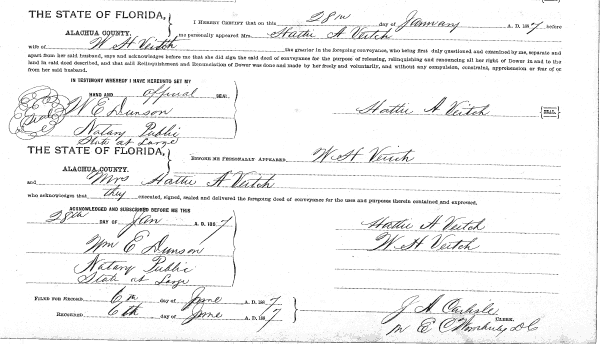 THE STATE OF FLORIDA,
ALACHUA COUNTY.
I HEREBY CERTIFY that on this 28th day of January A. D. 1887 before
me personally appeared Mrs Hattie A Veitch
wife of W H Veitch the grantor in the foregoing conveyance, who being first duly questioned and examined by me, separate and
apart from her said husband, says and acknowledges before me that she did sign the said deed of conveyance for the purpose of releasing, relinquishing and renouncing all her right of Dower in and to the
land in said deed described, and that said Relinquishment and Renunciation of Dower was done and made by her freely and voluntarily, and without any compulsion, constraint, apprehension or fear of or
from her said husband.
IN TESTIMONY WHEREOF I HAVE HEREUNTO SET MY
HAND AND official SEAL.
Seal
W E Dunson
Notary Public
State at Large
Hattie A Veitch SEAL.
THE STATE OF FLORIDA,
ALACHUA COUNTY.
BEFORE ME PERSONALLY APPEARED W H Veitch
and Mrs Hattie A Veitch
who acknowledges that they executed, signed, sealed and delivered the foregoing deed of conveyance for the uses and purposes therein contained and expressed.
ACKNOWLEDGED AND SUBSCRIBED BEFORE ME THIS
28th DAY OF Jan A. D. 1897
Wm E Dunson
Notary Public
State at Large
Hattie A Veitch
W H Veitch
FILED FOR RECORD 6th day of June A. D. 1887
RECORDED 6th day of June A. D. 1887
J A Carlisle
CLERK.
E C DC